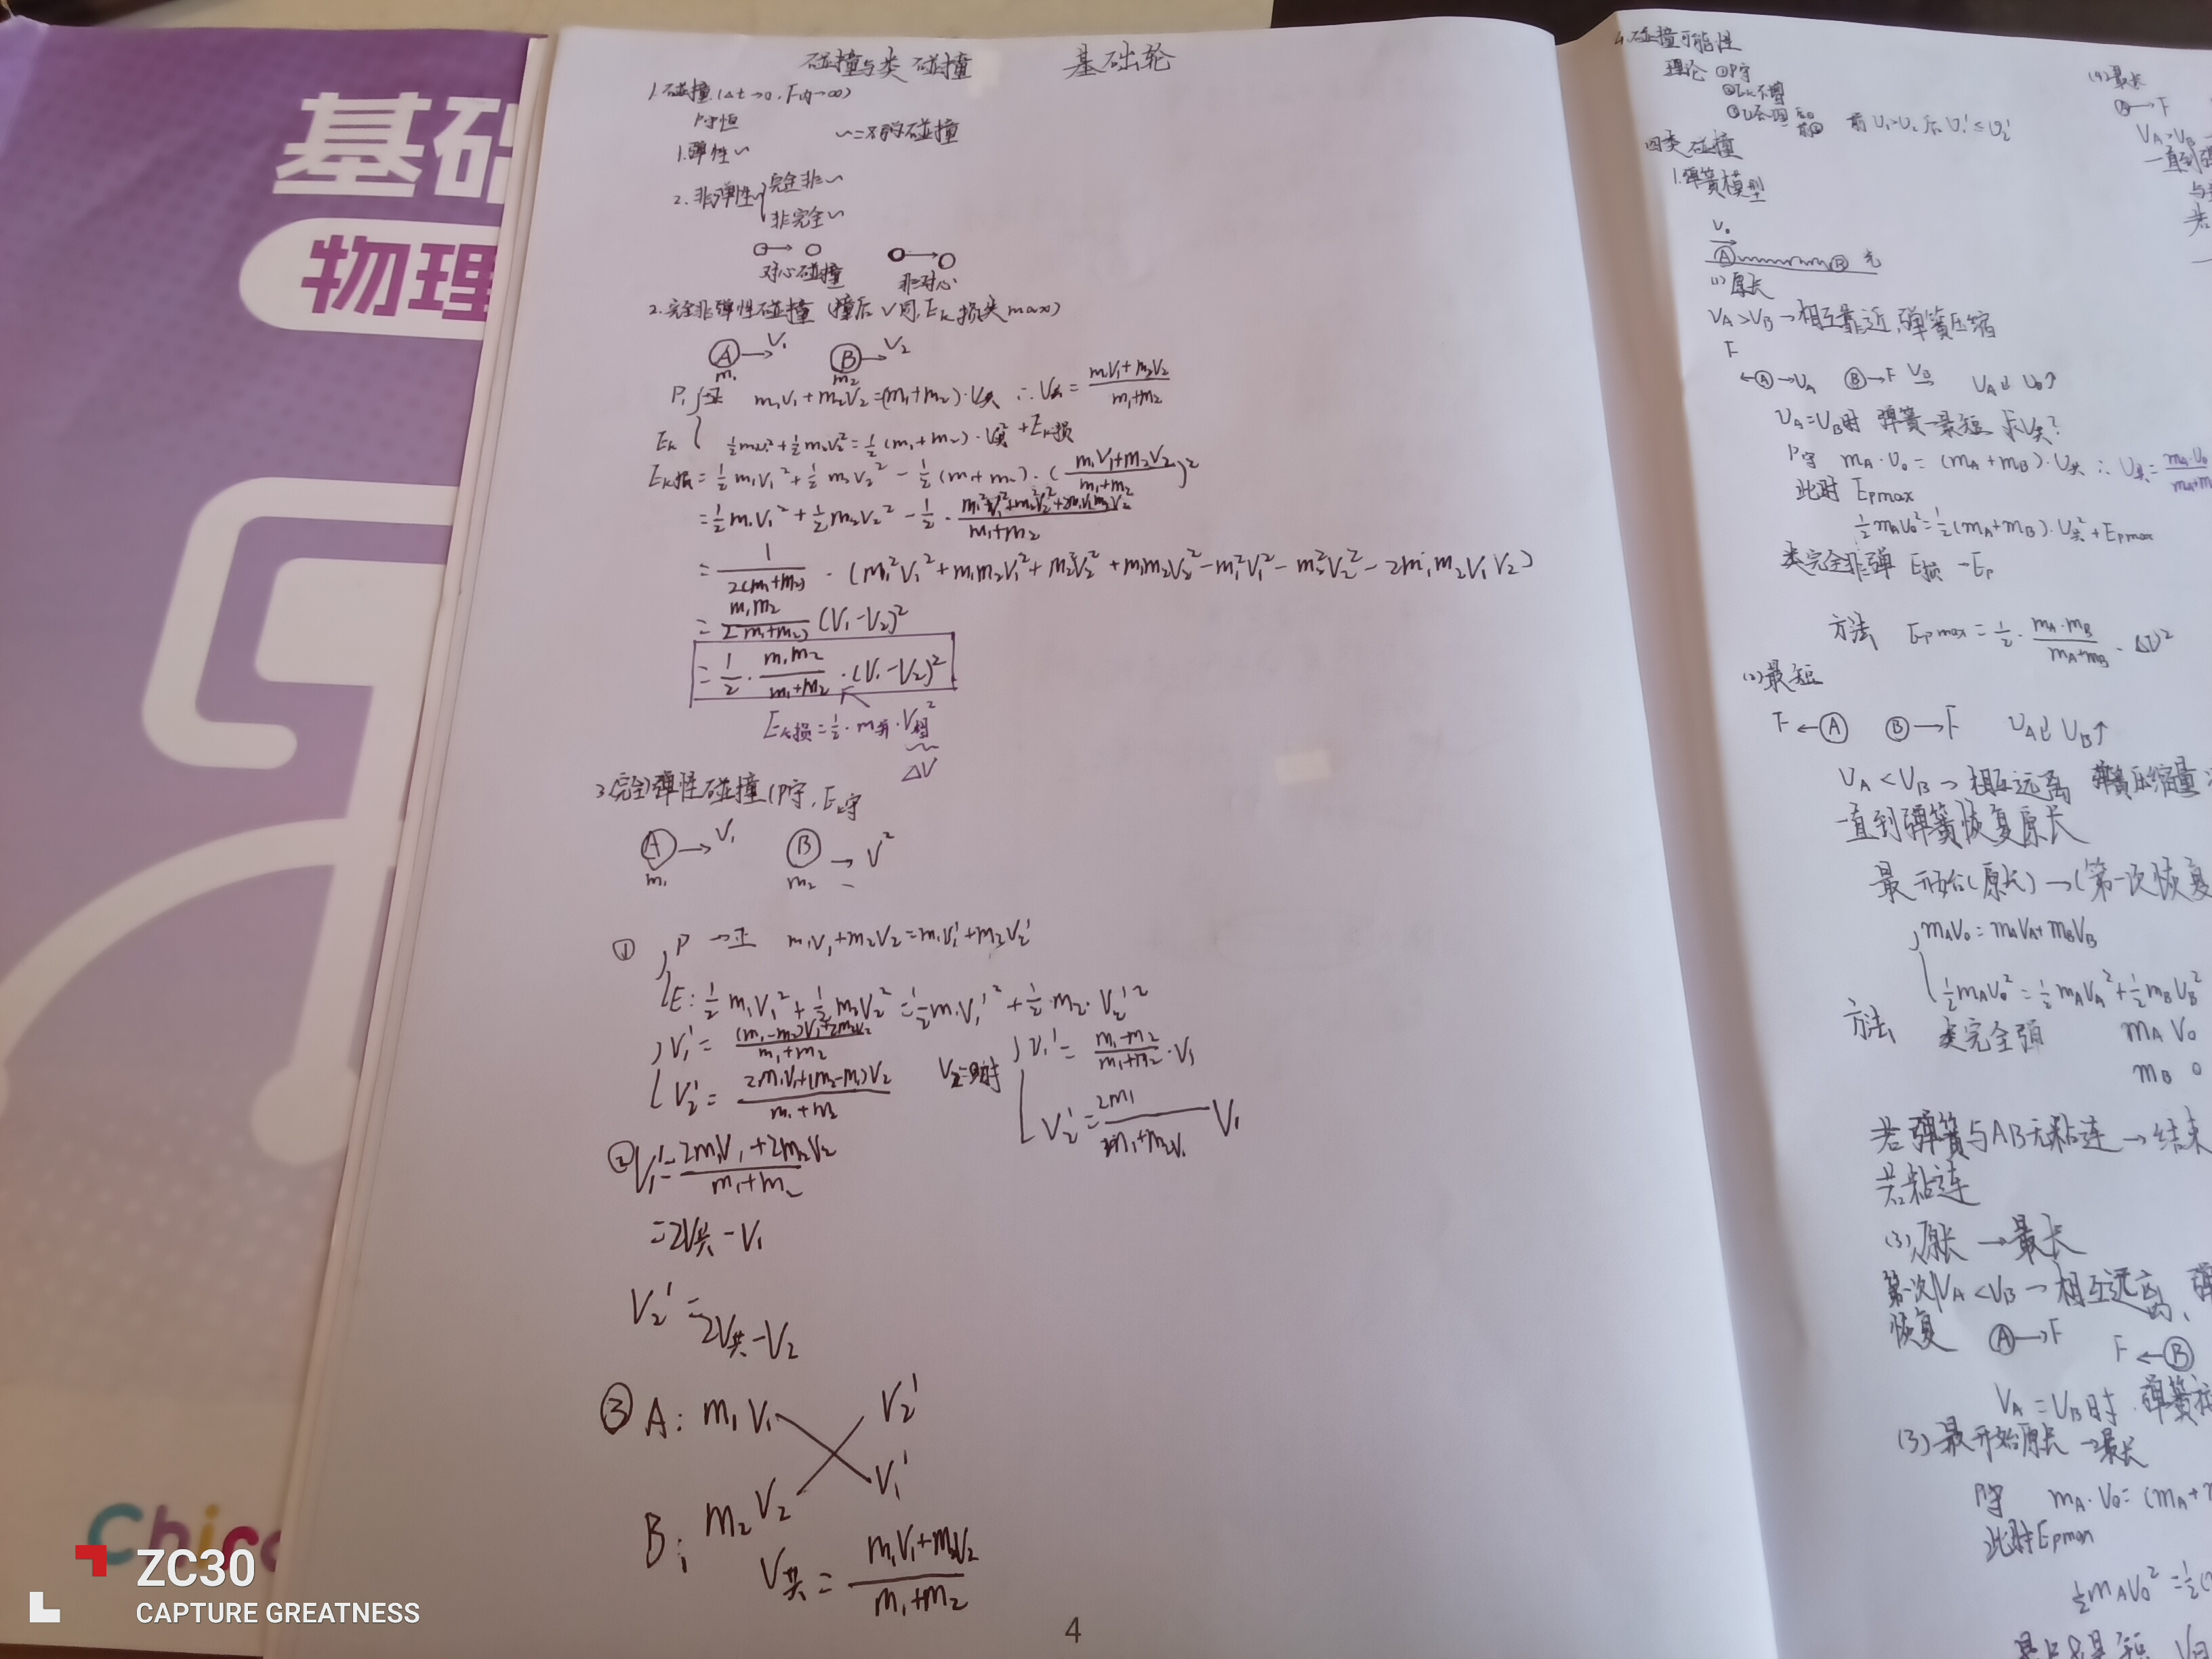 基础
物理
Chic
ZC30
CAPTURE GREATNESS
碰撞与类碰撞 基础轮
1.碰撞(Δt→0,F内→∞)
P守恒
1.弹性~
2.非弹性~
完全非~
非完全~
对心碰撞 非对心
2.完全非弹性碰撞(撞后V同,Ek损失max)
A→V₁ B→V₂
m₁ m₂
P: →正 m₁V₁+m₂V₂=(m₁+m₂)·V共 ∴V共=(m₁V₁+m₂V₂)/(m₁+m₂)
Ek ½m₁V₁²+½m₂V₂²=½(m₁+m₂)·V共²+Ek损
Ek损=½m₁V₁²+½m₂V₂²-½(m₁+m₂)·((m₁V₁+m₂V₂)/(m₁+m₂))²
=½m₁V₁²+½m₂V₂²-½·(m₁²V₁²+m₂²V₂²+2m₁V₁m₂V₂)/(m₁+m₂)
=1/2(m₁+m₂)·(m₁²V₁²+m₁m₂V₁²+m₂²V₂²+m₁m₂V₂²-m₁²V₁²-m₂²V₂²-2m₁m₂V₁V₂)
=m₁m₂/2(m₁+m₂)(V₁-V₂)²
=½·m₁m₂/(m₁+m₂)·(V₁-V₂)²
ΔV
3.(完全)弹性碰撞(P守,Ek守
A→V₁ B→V²
m₁ m₂
① P→正 m₁V₁+m₂V₂=m₁V₁'+m₂V₂'
E:½m₁V₁²+½m₂V₂²=½m₁V₁'²+½·m₂·V₂'²
V₁'=((m₁-m₂)V₁+2m₂V₂)/(m₁+m₂)
V₂'=(2m₁V₁+(m₂-m₁)V₂)/(m₁+m₂)
V₂=0时 V₁'=(m₁-m₂)/(m₁+m₂)·V₁
②V₁'=(2m₁V₁+2m₂V₂)/(m₁+m₂)
=2V共-V₁
V₂'=2V共-V₂
③ A: m₁V₁ V₂'
B: m₂V₂ V₁'
V共=(m₁V₁+m₂V₂)/(m₁+m₂)
4
4.碰撞可能性
理论 ①P守
②Ek不增
前V₁>V₂ 后V₁'≤V₂'
四类碰撞
1.弹簧模型
V₀
A B 光
(1)原长
VA>VB→相互靠近,弹簧压缩
F
←A→VA B→F VB VA↓ VB↑
VA=VB时 弹簧最短 求V共?
P守 mA·V₀=(mA+mB)·V共 ∴V共=
此时Epmax
½mAV₀²=½(mA+mB)·V共²+Epmax
类完全非弹 E损→Ep
方法 Epmax=½·mA·mB/(mA+mB)·ΔV²
(2)最短
F←A B→F VA↓ VB↑
VA<VB→相互远离 弹簧压缩量
一直到弹簧恢复原长
最开始(原长)→(第一次恢复
mAV₀=mAVA+mBVB
½mAV₀²=½mAVA²+½mBVB²
方法 类完全弹 mA V₀
mB 0
若弹簧与AB无粘连→结束
若粘连
(3)原长→最长
第一次恢复 VA<VB→相互远离,
A→F F←B
VA=VB时 弹簧
(3)最开始原长→最长
P守 mA·V₀=(mA+
此时Epmax
½mAV₀²=½(
(4)最长
A→F
VA>VB
一直到